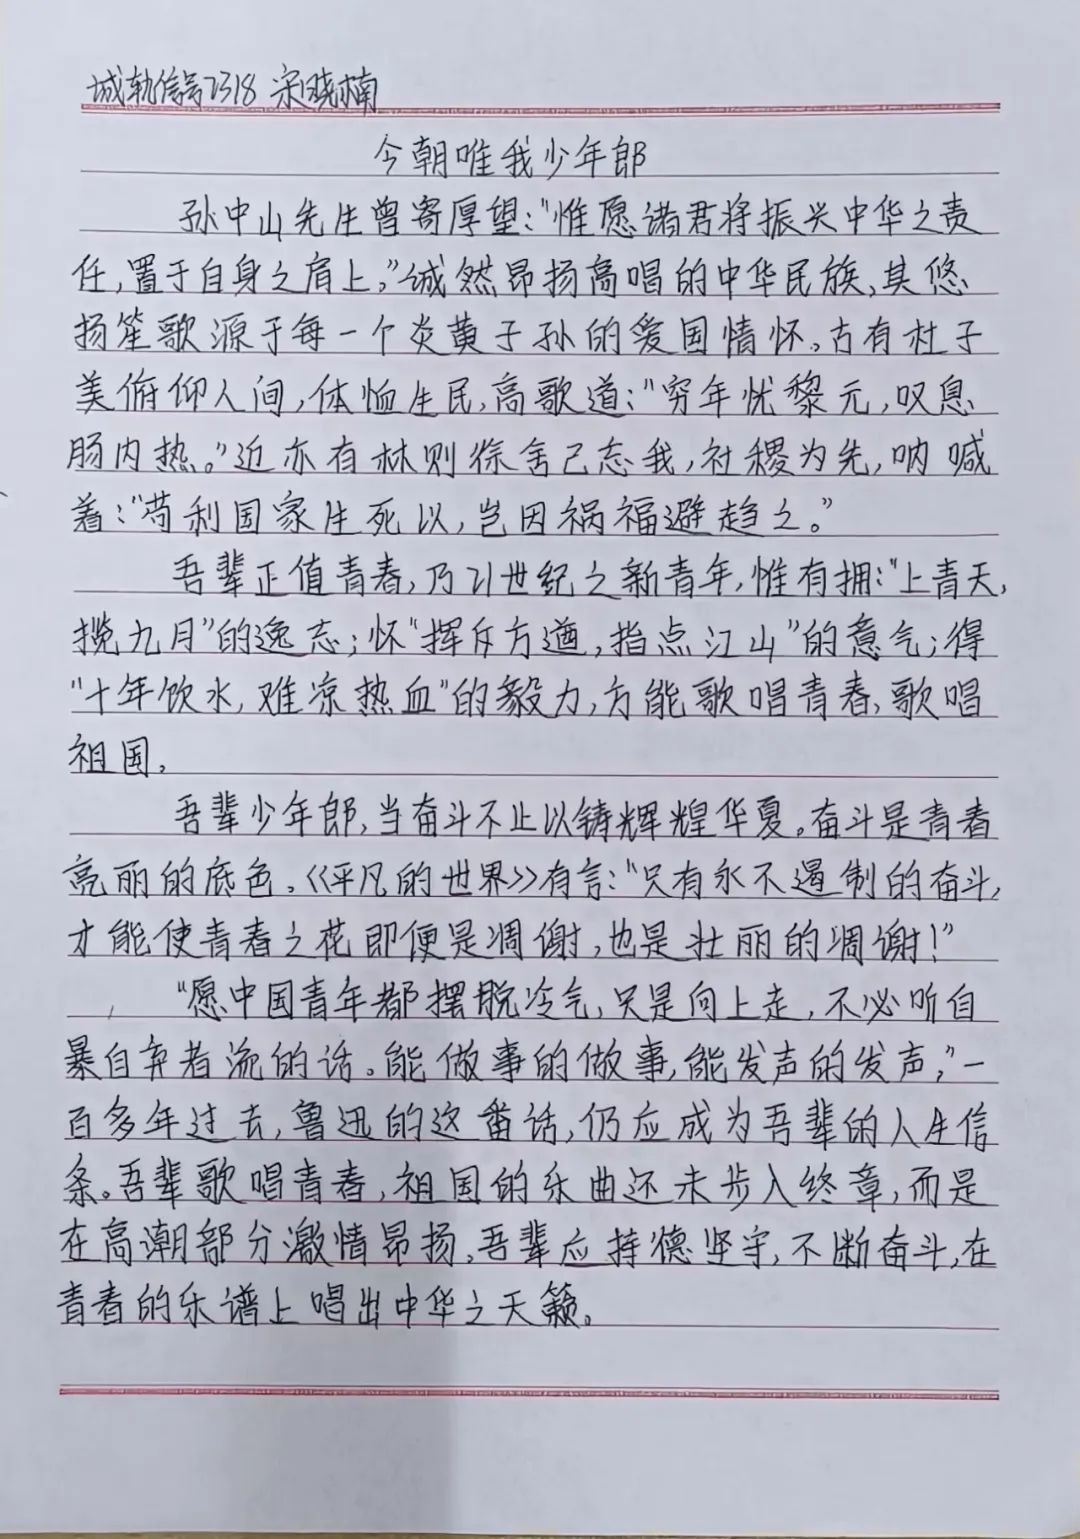 城轨信号2318 宋晓楠
今朝唯我少年郎
孙中山先生曾寄厚望:“惟愿诸君将振兴中华之责
任,置于自身之肩上。”诚然昂扬高唱的中华民族,其悠
扬笙歌源于每一个炎黄子孙的爱国情怀。古有杜子
美俯仰人间,体恤生民,高歌道:“穷年忧黎元,叹息
肠内热。”近亦有林则徐舍己忘我,社稷为先,呐喊
着:“苟利国家生死以,岂因祸福避趋之。”
吾辈正值青春,乃21世纪之新青年,惟有拥:“上青天,
揽九月”的逸态;怀“挥斥方遒,指点江山”的意气;得
“十年饮水,难凉热血”的毅力,方能歌唱青春,歌唱
祖国。
吾辈少年郎,当奋斗不止以铸辉煌华夏。奋斗是青春
亮丽的底色。《平凡的世界》有言:“只有永不遏制的奋斗,
才能使青春之花即便是凋谢,也是壮丽的凋谢!”
“愿中国青年都摆脱冷气,只是向上走,不必听自
暴自弃者流的话。能做事的做事,能发声的发声,”一
百多年过去,鲁迅的这番话,仍应成为吾辈的人生信
条。吾辈歌唱青春,祖国的乐曲还未步入终章,而是
在高潮部分激情昂扬,吾辈应持德坚守,不断奋斗,在
青春的乐谱上唱出中华之天籁。